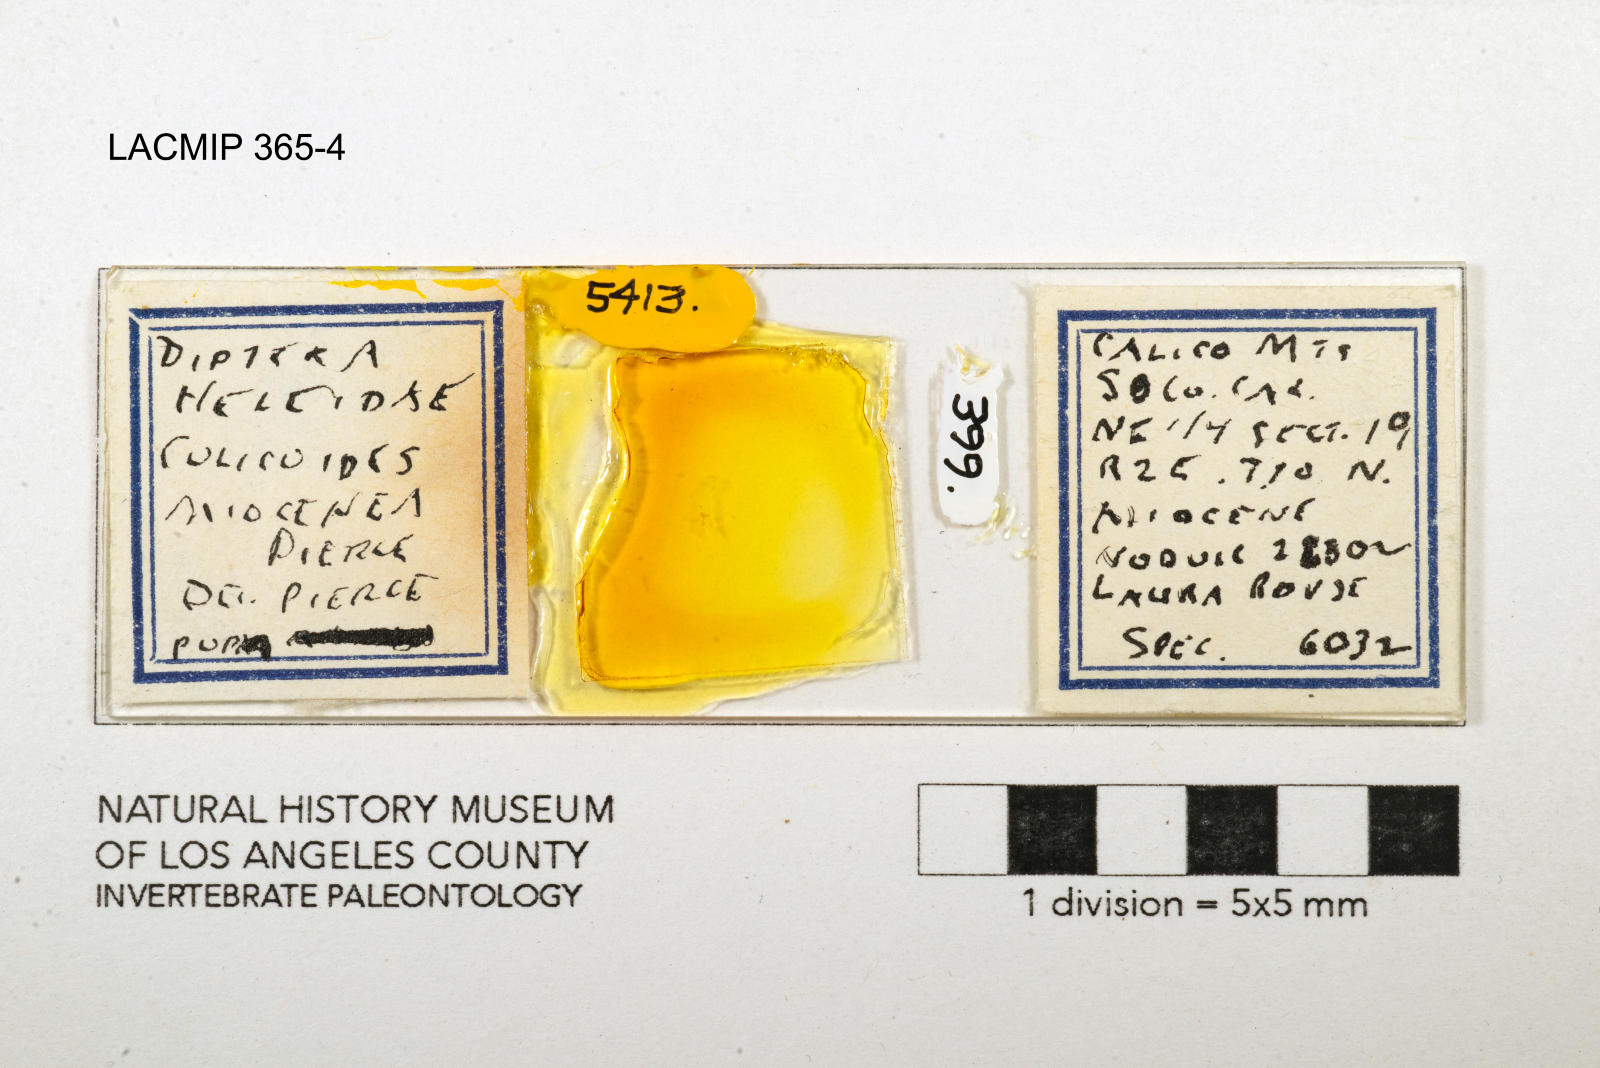 LACMIP 365-4
DIPTERA
HELEIDAE
CULICOIDES
MIOCENEA
PIERCE
DET. PIERCE
PUPA
5413.
399.
CALICO MTS
SB CO. CAL.
NE 1/4 SECT. 19
R2E. T10 N.
MIOCENE
NODULE
LAURA ROUSE
SPEC. 6032
NATURAL HISTORY MUSEUM
OF LOS ANGELES COUNTY
INVERTEBRATE PALEONTOLOGY
1 division = 5x5 mm